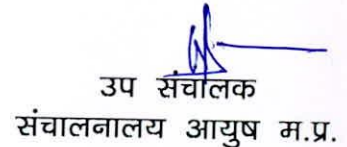 उप संचालक
संचालनालय आयुष म.प्र.